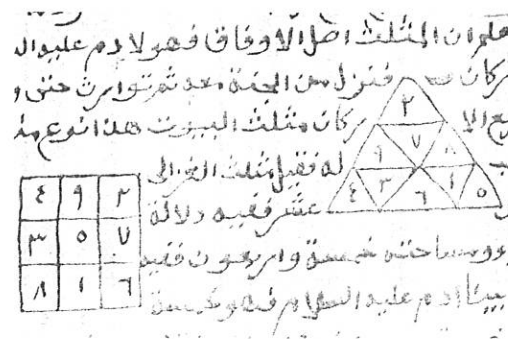 علم ان المثلث اصل الاوفاق فهو لادم عليه ال
ركان فنزل من الجنة معه ثم توارث حتى و
ع الا ركان مثلث البيوت هذا نوع من
له فقيل مثلث الغزالي
عشر ففيه دلالة
ومساحته خمسة واربعون ففيه
ادم عليه السلام فيه وخمسة
٢
٩ ٧ ٨
٤ ٣ ٦ ١ ٥
٤ ٩ ٢
٣ ٥ ٧
٨ ١ ٦